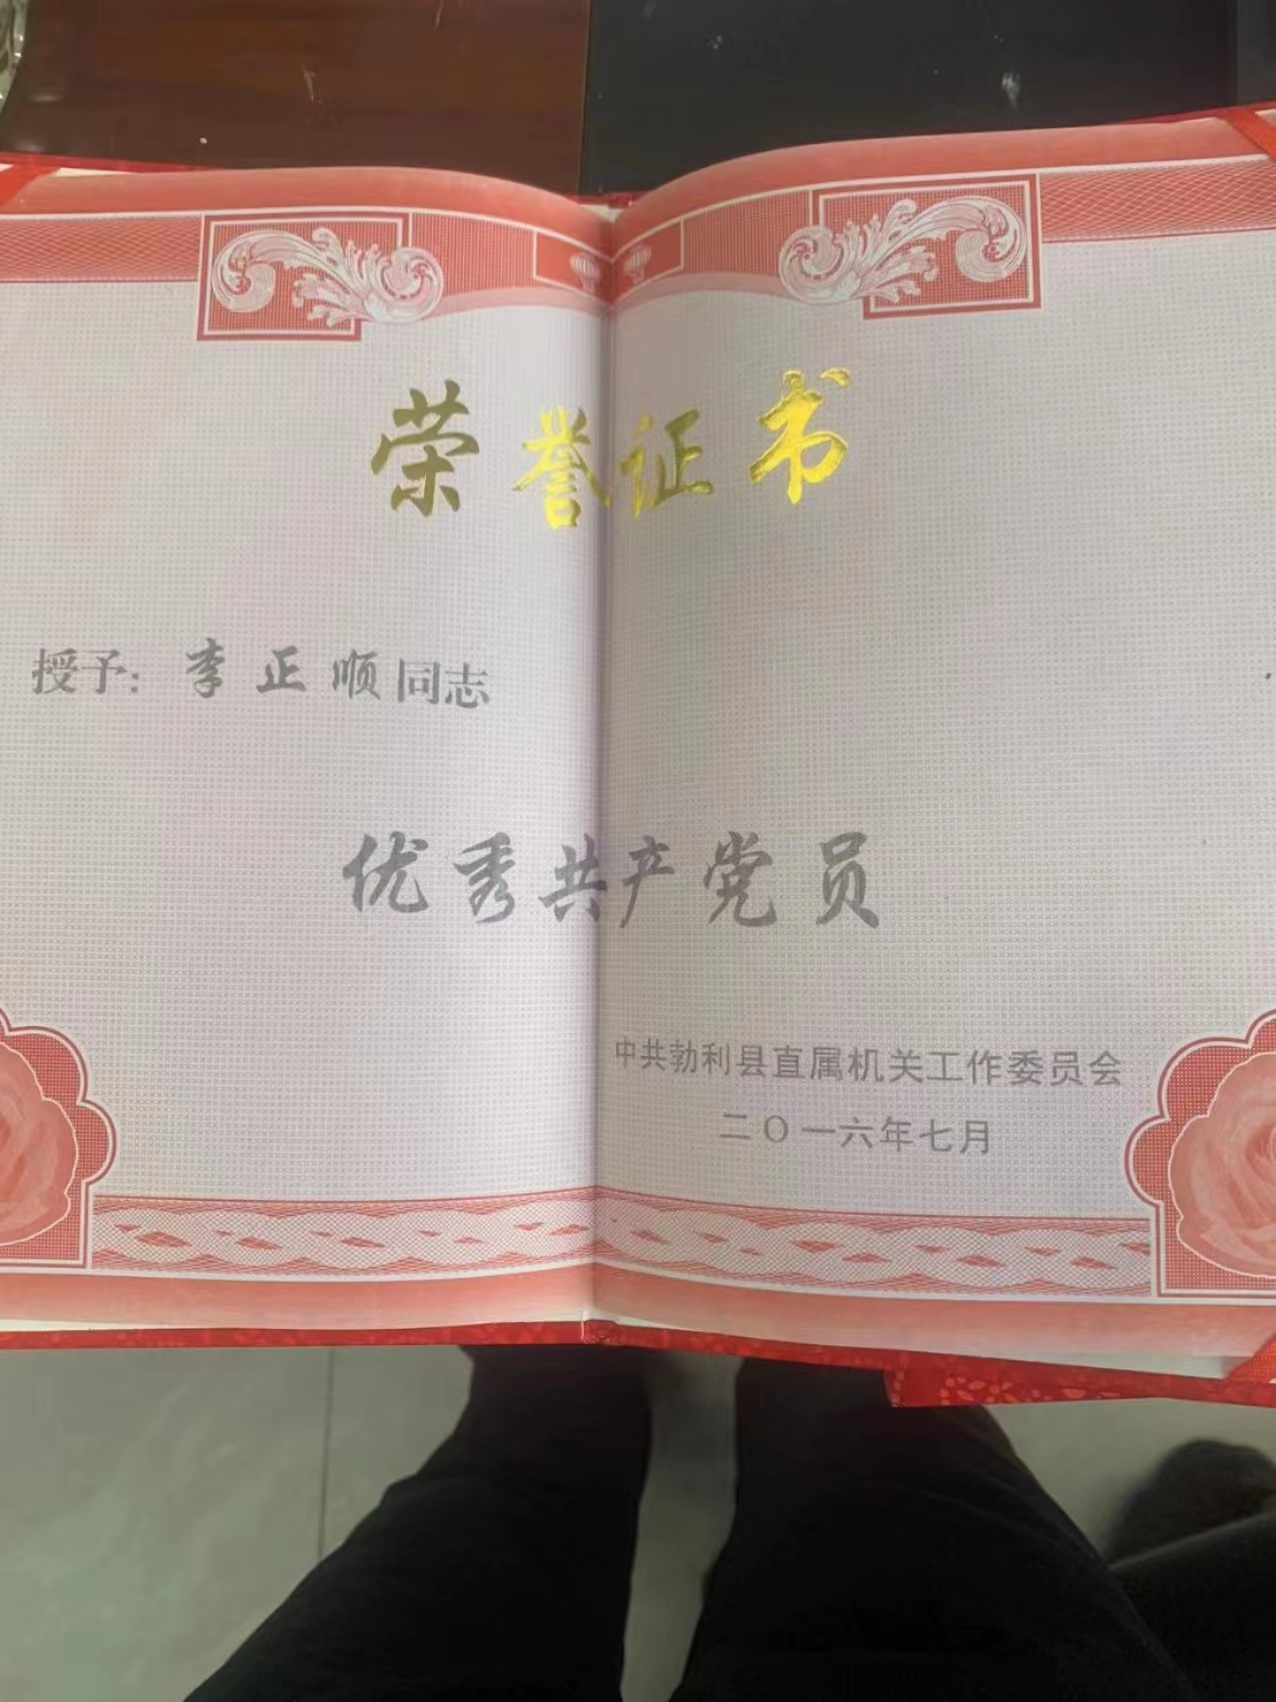 荣誉证书
授予：李正顺同志
优秀共产党员
中共勃利县直属机关工作委员会
二〇一六年七月